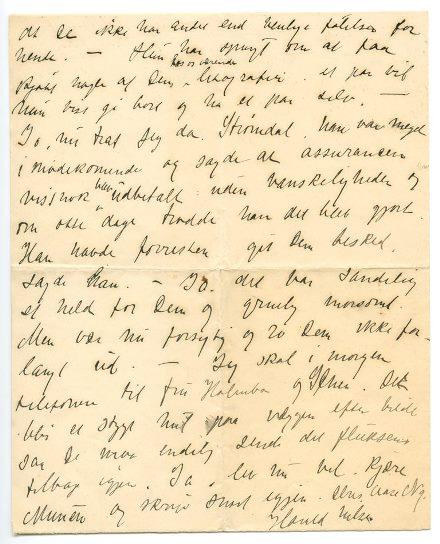 at De ikke har andet end venlige følelser for
hende. — Hun har spurgt om at faa
kjøbt nogen af Dem litografier. et par vil
hun vist gi bort og ha et par selv. —
Jo, nu traf jeg da Strømdal, han var meget
imødekommende og sagde at assurancen
vistnok blev udbetalt uden vanskeligheder og
om otte dage trodde han det blev gjort.
Han havde forresten git Dem besked,
sagde han. — Jo, det var sandelig
et held for Dem og grulig morsomt.
Men vær nu forsigtig og ro Dem ikke for
langt ud. — Jeg skal i morgen
telefonere til fru Holmboe og Schou. Det
blir et stygt hul paa væggen efter billedet
saa De maa endelig sende det fluksens
tilbage igjen. Ja, lev nu vel. kjære
Munch og skriv snart igjen.
Harald